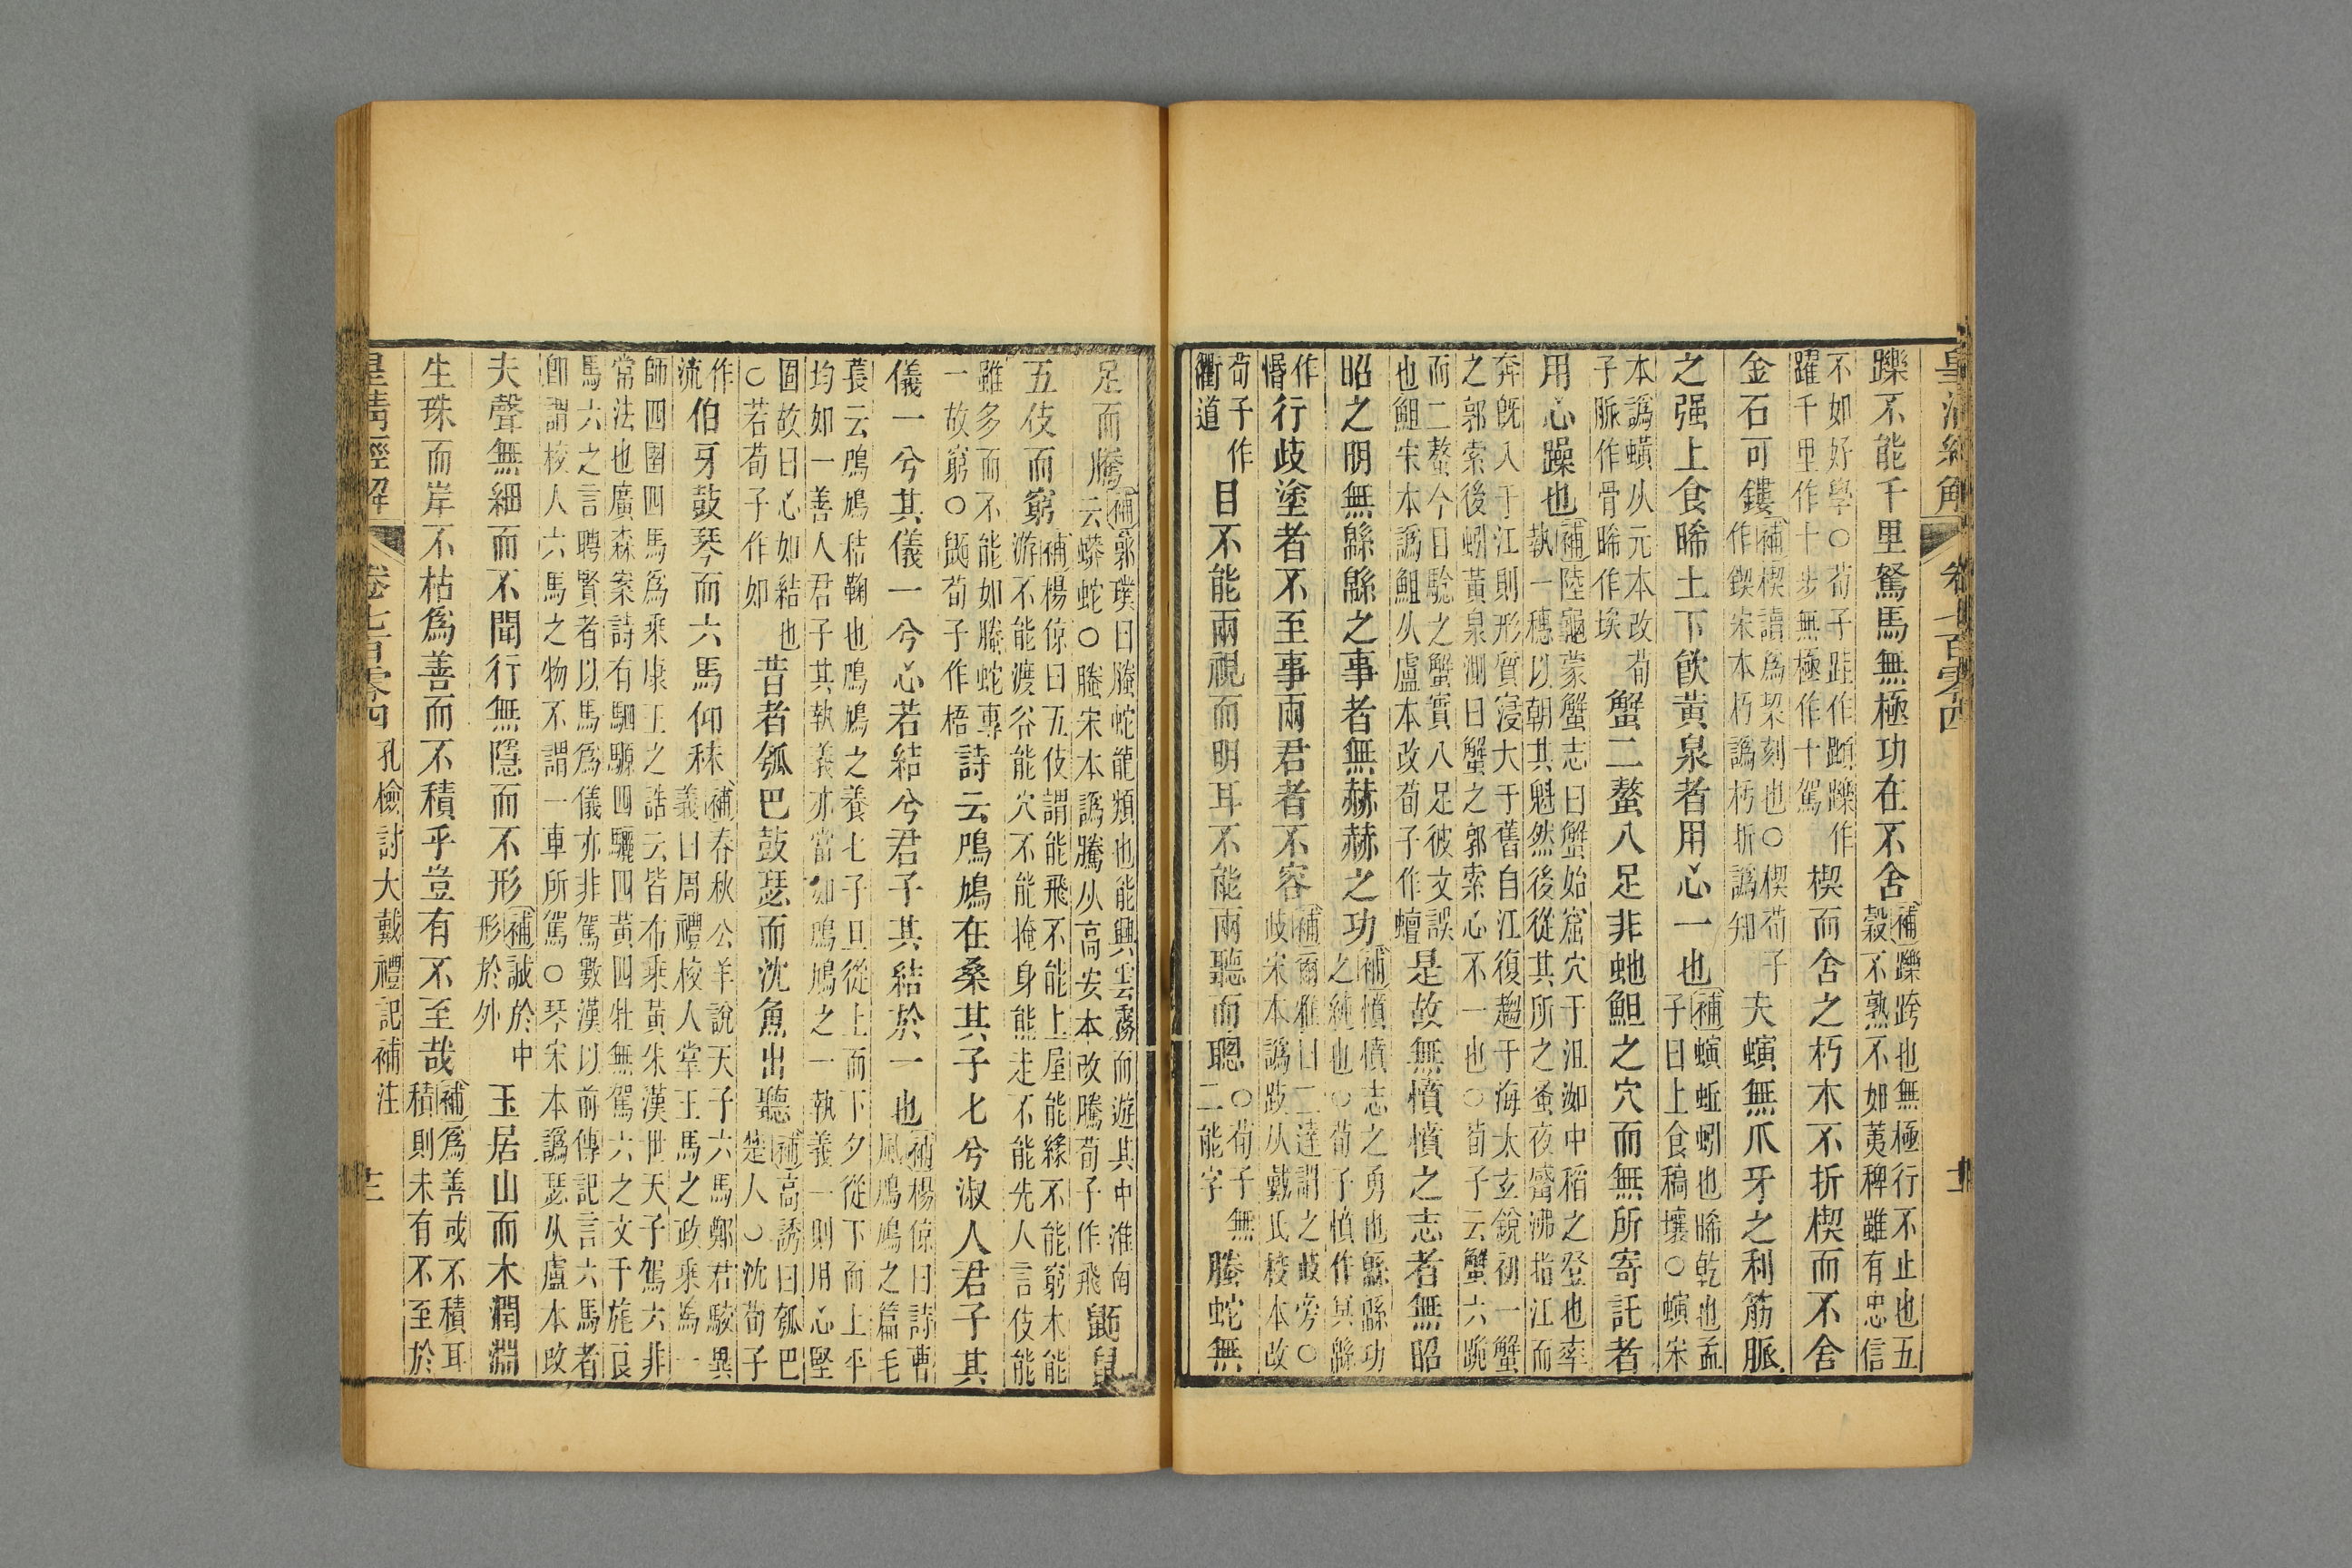 皇清經解 卷七百零四
躒不能千里駑馬無極功在不舍補躒跨也無極行不止也五
穀不熟不如荑稗雖有忠信
不如好學○荀子跬作蹞躒作
躍千里作十步無極作十駕楔而舍之朽木不折楔而不舍
金石可鏤補楔讀爲栔刻也○楔荀子
作鍥宋本朽譌朽折譌知夫螾無爪牙之利筋脈
之强上食晞土下飮黃泉者用心一也補螾蚯蚓也晞乾也孟
子曰上食稿壤○螾宋
本譌蟥从元本改荀
子脈作骨晞作埃蟹二螯八足非虵䱇之穴而無所寄託者
用心躁也補陸龜蒙蟹志曰蟹始窟穴于沮洳中稻之登也率
執一穗以朝其魁然後從其所之蚤夜觱沸指江而
奔旣入于江則形質寖大于舊自江復趨于海太玄銳初一蟹
之郭索後蚓黃泉測曰蟹之郭索心不一也○荀子云蟹六跪
而二螯今目驗之蟹實八足彼文誤
也䱇宋本譌鉏从盧本改荀子作蟺是故無憤憤之志者無昭
昭之明無緜緜之事者無赫赫之功補憤憤志之勇也緜緜功
之純也○荀子憤作冥緜
作
惛行歧塗者不至事兩君者不容補爾雅曰二達謂之歧旁○
歧宋本譌跂从戴氏校本改
荀子作
衢道目不能兩視而明耳不能兩聽而聰○荀子無
二能字螣蛇無
足而騰補郭璞曰螣蛇龍類也能興雲霧而遊其中淮南
云蟒蛇○螣宋本譌騰从高安本改騰荀子作飛鼫鼠
五伎而窮補楊倞曰五伎謂能飛不能上屋能緣不能窮木能
游不能渡谷能穴不能掩身能走不能先人言伎能
雖多而不能如螣蛇專
一故窮○鼫荀子作梧詩云鳲鳩在桑其子七兮淑人君子其
儀一兮其儀一兮心若結兮君子其結於一也補楊倞曰詩曹
風鳲鳩之篇毛
萇云鳲鳩秸鞠也鳲鳩之養七子旦從上而下夕從下而上平
均如一善人君子其執義亦當如鳲鳩之一執義一則用心堅
固故曰心如結也
○若荀子作如昔者瓠巴鼓瑟而沈魚出聽補高誘曰瓠巴
楚人○沈荀子
作
流伯牙鼓琴而六馬仰秣補春秋公羊說天子六馬鄭君駮異
義曰周禮校人掌王馬之政乘爲一
師四圉四馬爲乘康王之誥云皆布乘黃朱漢世天子駕六非
常法也廣森案詩有駟騵四驪四黃四牡無駕六之文干旄良
馬六之言聘賢者以馬爲儀亦非駕數漢以前傳記言六馬者
卽謂校人六馬之物不謂一車所駕○琴宋本譌瑟从盧本改
夫聲無細而不聞行無隱而不形補誠於中
形於外玉居山而木潤淵
生珠而岸不枯爲善而不積乎豈有不至哉補爲善或不積耳
積則未有不至於
皇清經解 卷七百零四 孔檢討大戴禮記補注